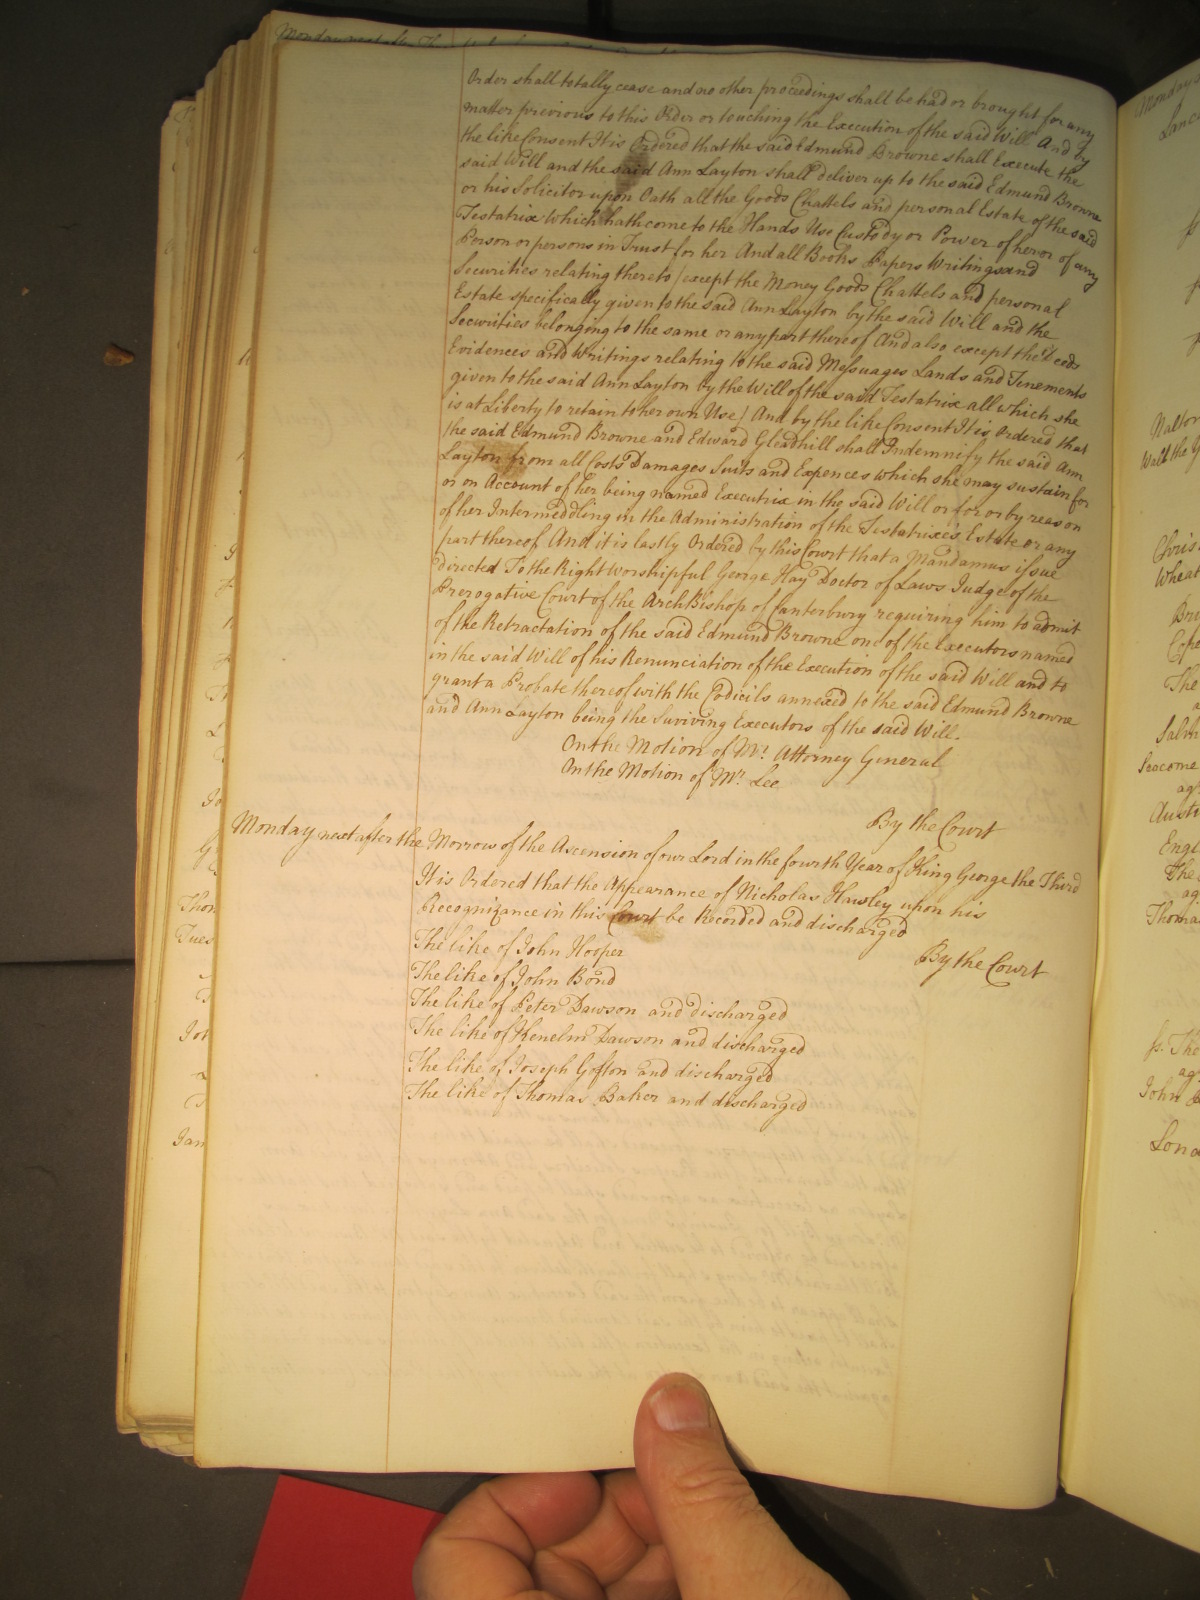 Order shall totally cease and no other proceedings shall be had or brought for any
matter previous to this Order or touching the Execution of the said Will And by
the like Consent It is Ordered that the said Edmund Browne shall Execute the
said Will and the said Ann Layton shall deliver up to the said Edmund Browne
or his Solicitor upon Oath all the Goods Chattels and personal Estate of the said
Testatrix which hath come to the Hands Use Custody or Power of her or of any
Person or persons in Trust for her And all Books Papers Writings and
Securities relating thereto (except the Money Goods Chattels and personal
Estate specifically given to the said Ann Layton by the said Will and the
Securities belonging to the same or any part thereof And also except the Deeds
Evidences and Writings relating to the said Messuages Lands and Tenements
given to the said Ann Layton by the Will of the said Testatrix all which she
is at Liberty to retain to her own Use) And by the like Consent It is Ordered that
the said Edmund Browne and Edward Gleadhill shall Indemnify the said Ann
Layton from all Costs Damages Suits and Expences which she may sustain for
or on Account of her being named Executrix in the said Will or for or by reason
of her Intermeddling in the Administration of the Testatrixe's Estate or any
part thereof And it is lastly Ordered by this Court that a Mandamus issue
directed To the Right Worshipful George Hay Doctor of Laws Judge of the
Prerogative Court of the ArchBishop of Canterbury requiring him to admit
of the Retractation of the said Edmund Browne one of the Executors named
in the said Will of his Renunciation of the Execution of the said Will and to
grant a Probate thereof with the Codicils annexed to the said Edmund Browne
and Ann Layton being the Suriving Executors of the said Will.
On the Motion of Mr. Attorney General
On the Motion of Mr. Lee
By the Court
Monday next after the Morrow of the Ascension of our Lord in the fourth Year of King George the Third
It is Ordered that the Appearance of Nicholas Hawley upon his
Recognizance in this Court be Recorded and discharged
By the Court
The like of John Hooper
The like of John Bond
The like of Peter Dawson and discharged
The like of Kenelm Dawson and discharged
The like of Joseph Gofton and discharged
The like of Thomas Baker and discharged